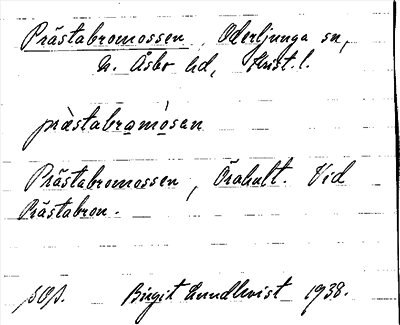 Prästabromossen, Oderljunga sn,
N. Åsbo hd, Krist. l.
prästabramósan
Prästabromossen, Örahult. Vid
Prästabron.
Birgit Lundkvist 1938.